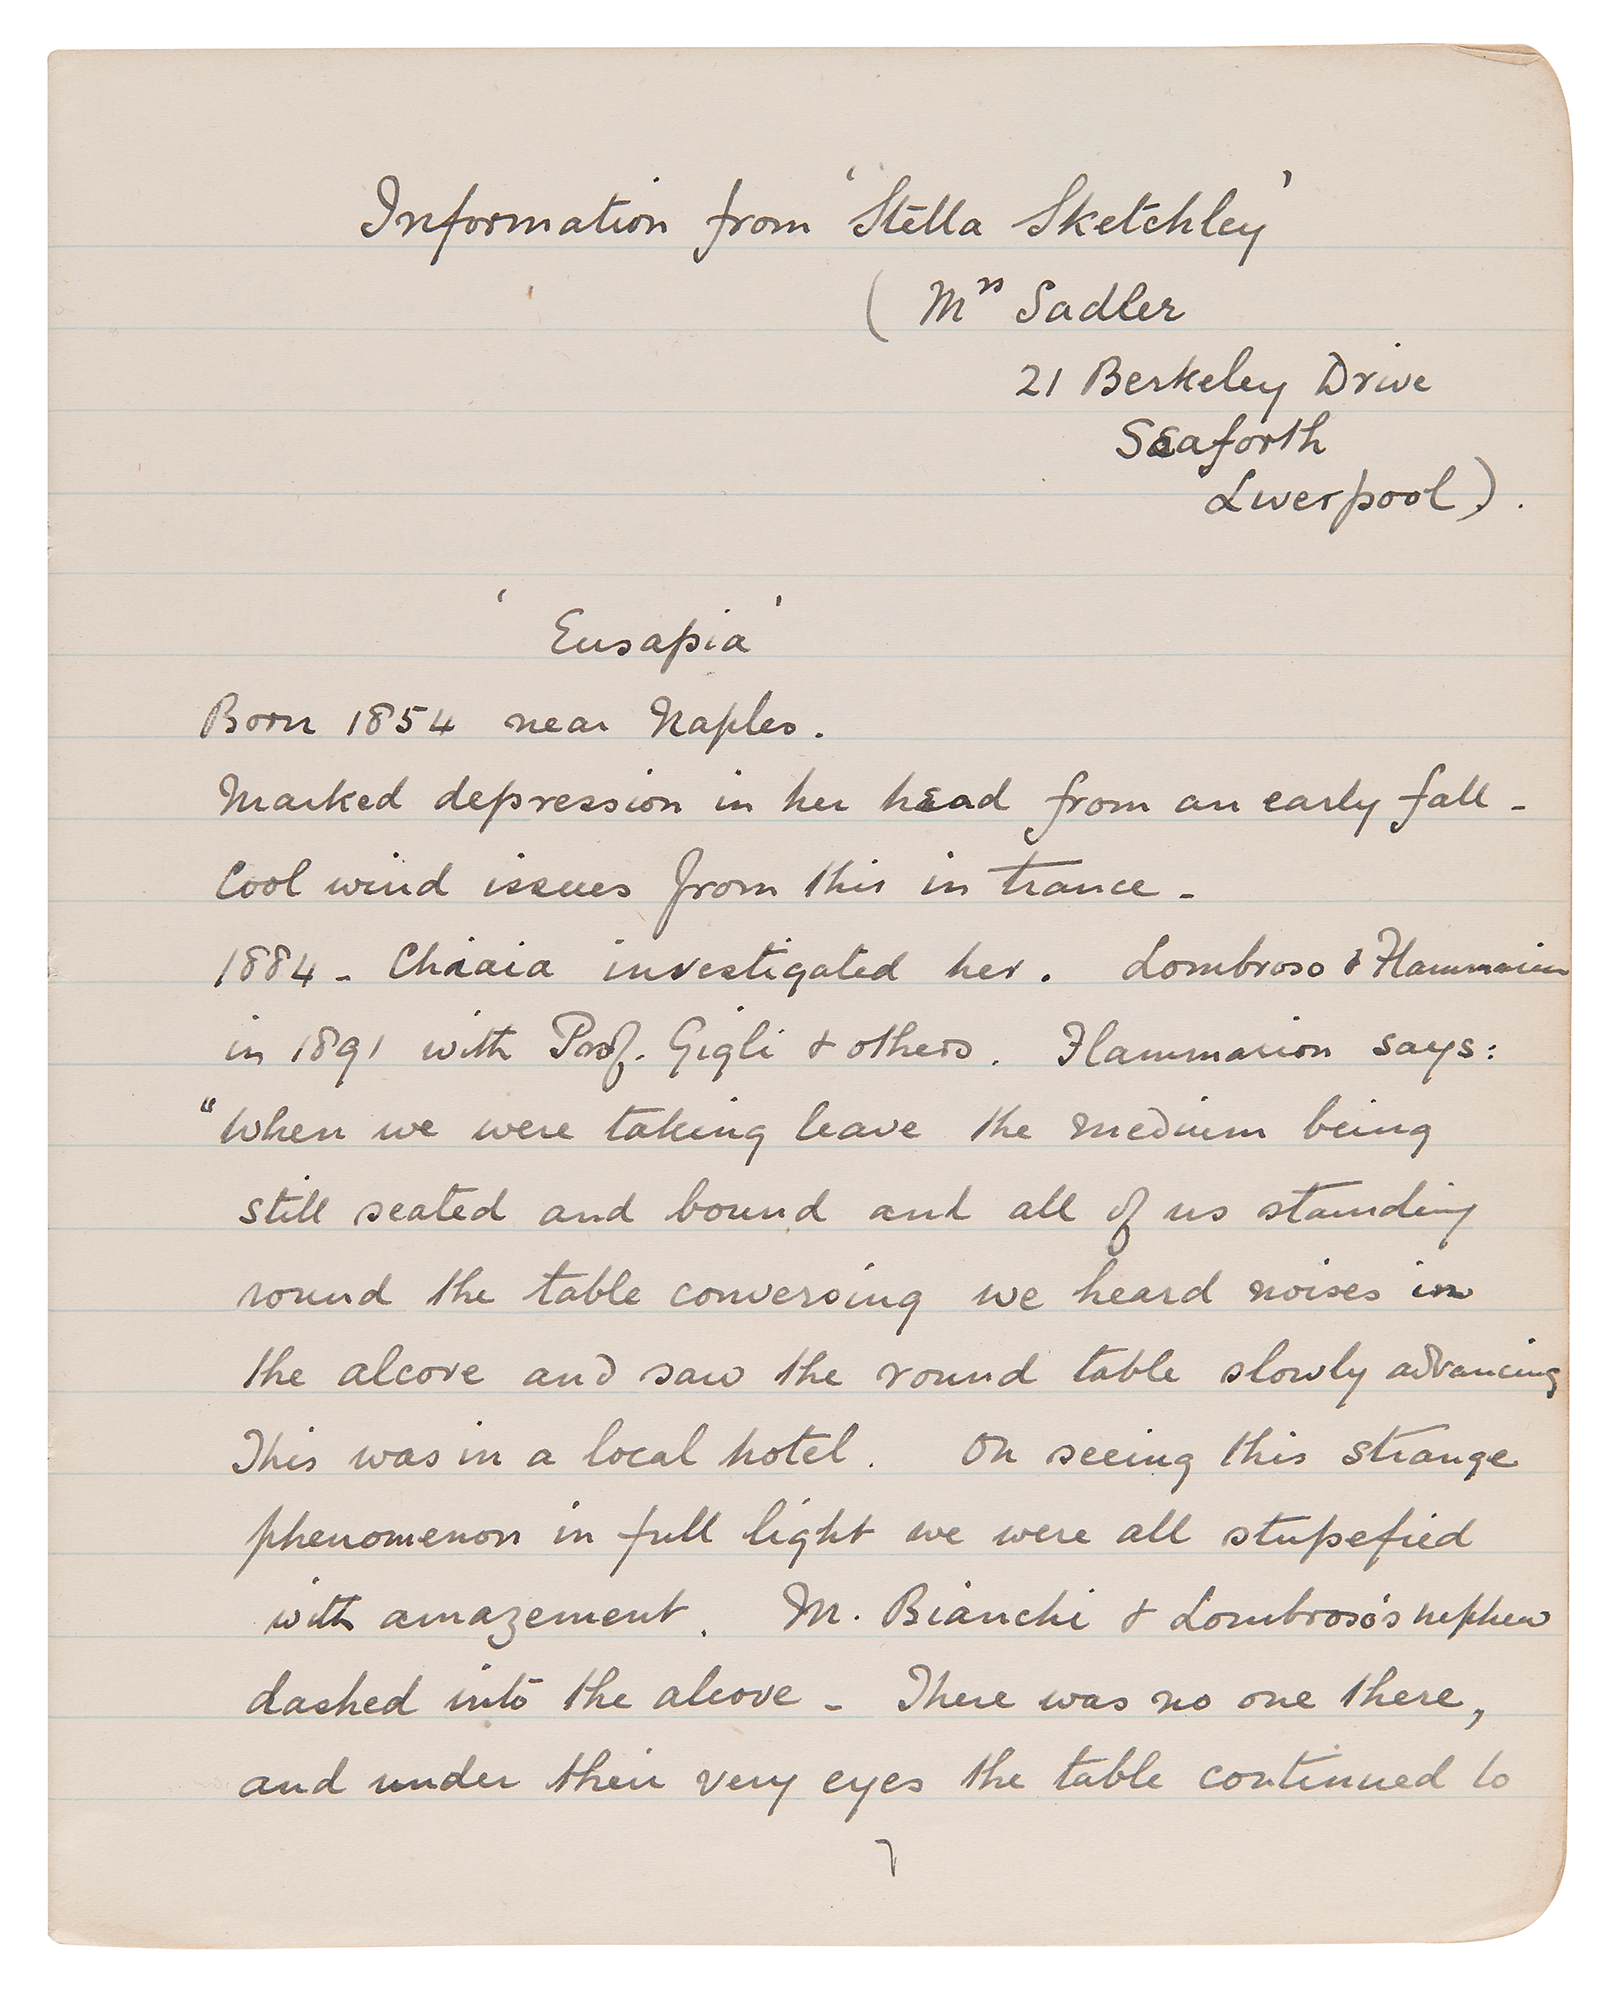 Information from 'Stella Sketchley'
(Mrs Sadler
21 Berkeley Drive
Seaforth
Liverpool).
'Eusapia'
Born 1854 near Naples.
Marked depression in her head from an early fall -
Cool wind issues from this in trance -
1884 - Chiaia investigated her. Lombroso & Flammarion
in 1891 with Prof. Gigli & others. Flammarion says:
"When we were taking leave the medium being
still seated and bound and all of us standing
round the table conversing we heard noises in
the alcove and saw the round table slowly advancing
This was in a local hotel. On seeing this strange
phenomenon in full light we were all stupefied
with amazement. M. Bianchi & Lombroso's nephew
dashed into the alcove - There was no one there,
and under their very eyes the table continued to